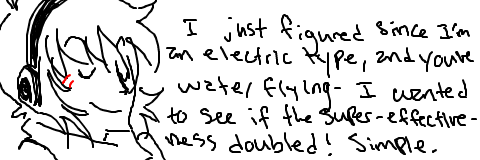 I just figured since I'm
an electric type, and you're
water/flying- I wanted
to see if the super-effective-
ness doubled! Simple.